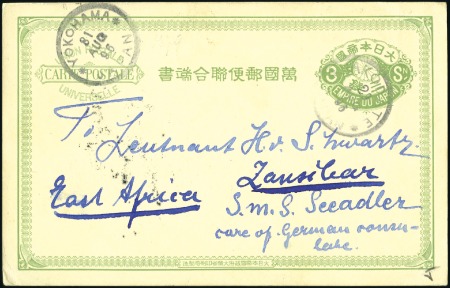 YOKOHAMA
CARTE POSTALE
UNIVERSELLE
萬國郵便聯合端書
大日本帝國
3 Sn
EMPIRE DU JAPON
To Leutnant H. v. Schwartz.
Zansibar
East Africa
S.M.S. Seeadler
care of German consu-
late.